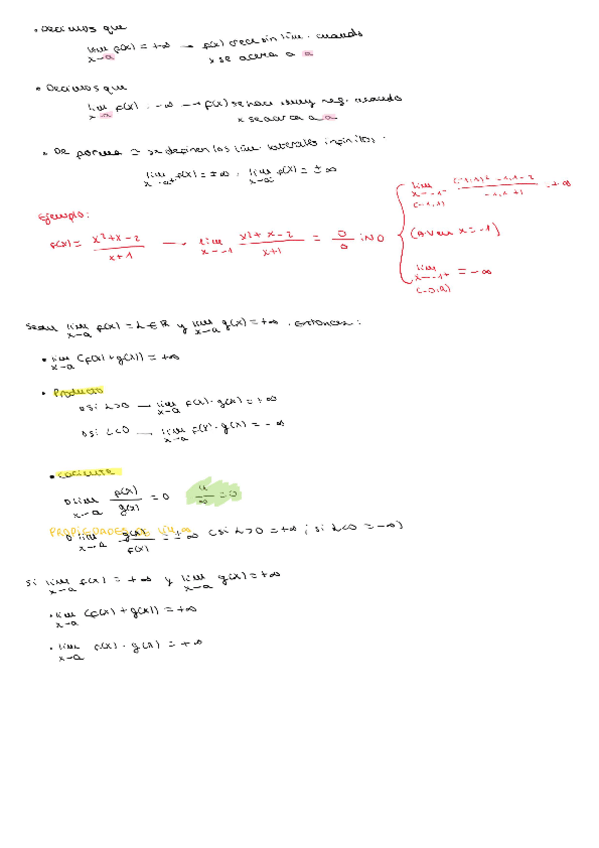 • Decimos que
lim x→a f(x) = +∞ → f(x) crece sin lím. cuando
x se acerca a a
• Decimos que
lim x→a f(x) = -∞ → f(x) se hace muy neg. cuando
x se acerca a a
• De forma = se definen los lím. laterales infinitos.
lim x→a+ f(x) = ±∞ , lim x→a- f(x) = ±∞
Ejemplo:
f(x) = (x²+x-2)/(x+1) → lim x→-1 (x²+x-2)/(x+1) = 0/0 IND
lim x→-1- ((-1,1)² -1,1-2)/(-1,1+1) = +∞
(-1,1)
(A ver x=-1)
lim x→-1+ = -∞
(-0,9)
Sean lim x→a f(x) = L ∈ R y lim x→a g(x) = +∞. Entonces:
• lim x→a (f(x)+g(x)) = +∞
• Producto
o si L>0 → lim x→a f(x)·g(x) = +∞
o si L<0 → lim x→a f(x)·g(x) = -∞
• Cociente
o lim x→a f(x)/g(x) = 0 4/∞ = 0
PROPIEDADES
o lim x→a g(x)/f(x) = ±∞ (si L>0 = +∞ ; si L<0 = -∞)
Si lim x→a f(x) = +∞ y lim x→a g(x) = +∞
• lim x→a (f(x)+g(x)) = +∞
• lim x→a f(x)·g(x) = +∞